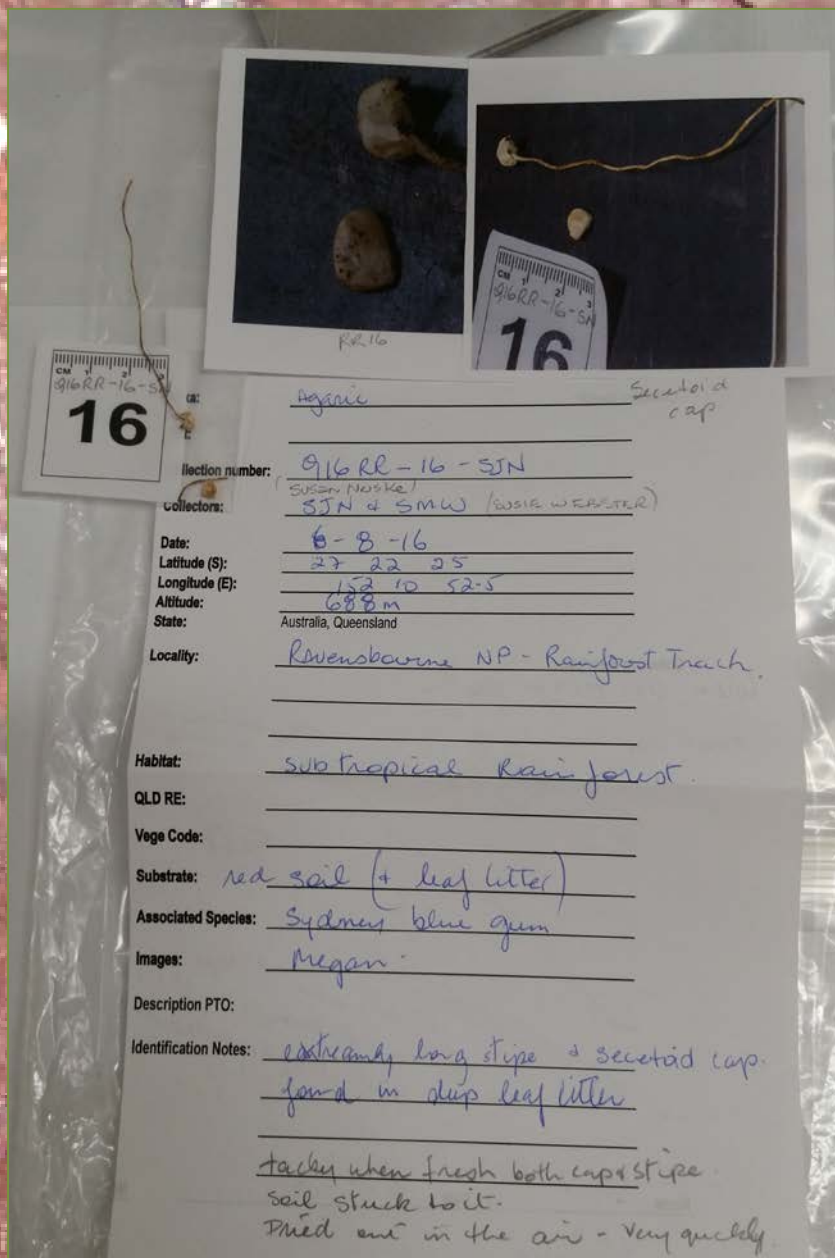 RR16
CM 1 2 3
916RR-16-SN
16
CM 1 2
916RR-16-SN
16
ca:
Agaric
Secetoid
cap
llection number: 916 RR - 16 - SJN
(SUSAN NUSKE)
Collectors: SJN & SMW (SUSIE WEBSTER)
Date: 6 - 8 - 16
Latitude (S): 27 22 25
Longitude (E): 152 10 52.5
Altitude: 688m
State: Australia, Queensland
Locality: Ravensbourne NP - Rainforest Track.
Habitat: subtropical Rainforest.
QLD RE:
Vege Code:
Substrate: red soil (+ leaf litter)
Associated Species: Sydney blue gum
Images: Megan.
Description PTO:
Identification Notes: extreamly long stipe & secetoid cap.
found in deep leaf litter
tacky when fresh both cap & stipe.
Soil stuck to it.
Dried out in the air - very quickly.